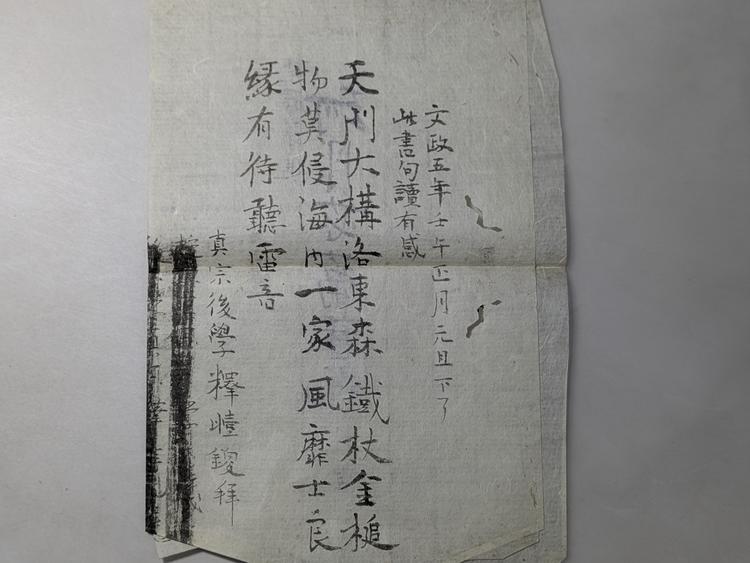 文政五年壬午正月元旦下了
此書句讀有感
天門大構洛東森鐵杖金槌
物莫侵海内一家風靡士良
縁有待聽雷音
真宗後學釋曀鑁拜